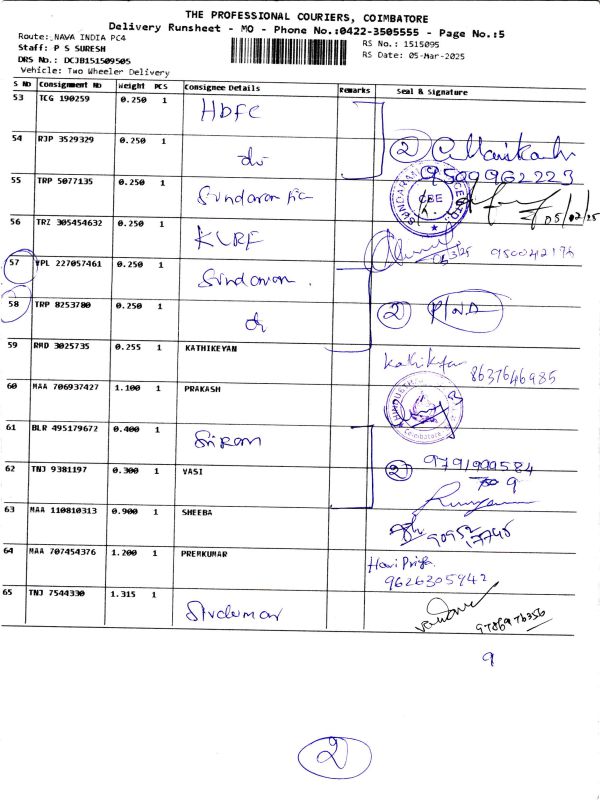 THE PROFESSIONAL COURIERS, COIMBATORE
Delivery Runsheet - MO - Phone No.:0422-3505555 - Page No.:5
Route: NAVA INDIA PC4
Staff: P S SURESH
RS No.: 1515095
DRS No.: DCJB151509505
RS Date: 05-Mar-2025
Vehicle: Two Wheeler Delivery
S No Consignment No Weight PCS Consignee Details Remarks Seal & Signature
53 TCG 190259 0.250 1 HDFC
54 RJP 3529329 0.250 1 do 2
9500962223
55 TRP 5077135 0.250 1 Sundaram SUNDARAM CBE
56 TRZ 305454632 0.250 1 KURF
57 VPL 227057461 0.250 1 Sundaram
58 TRP 8253780 0.250 1 do 2
59 RMD 3025735 0.255 1 KATHIKEYAN 8637646985
60 MAA 706937427 1.100 1 PRAKASH Coimbatore
61 BLR 495179672 0.400 1 Sriram
62 TNJ 9381197 0.300 1 VASI 2
63 MAA 110810313 0.900 1 SHEEBA
64 MAA 707454376 1.200 1 PREMKUMAR Hari Priya
9626305942
65 TNJ 7544330 1.315 1
9786976356
9
2